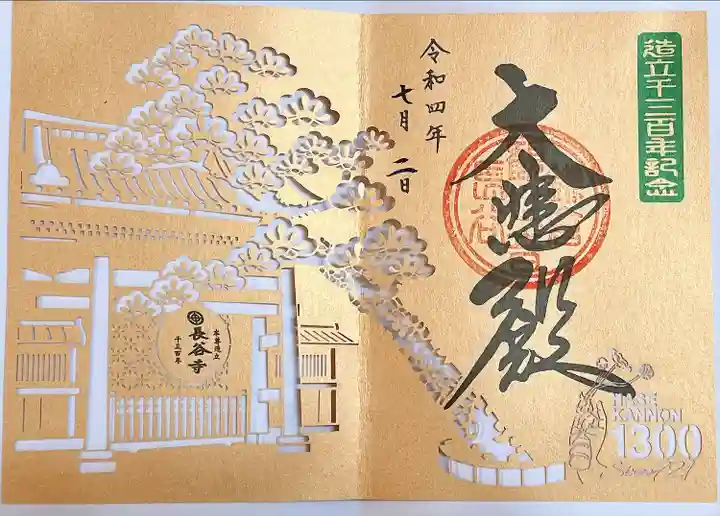 造立千三百年記念
大悲殿
令和四年
七月二日
本尊造立
長谷寺
千三百年
HASE
KANNON
1300
Since 721